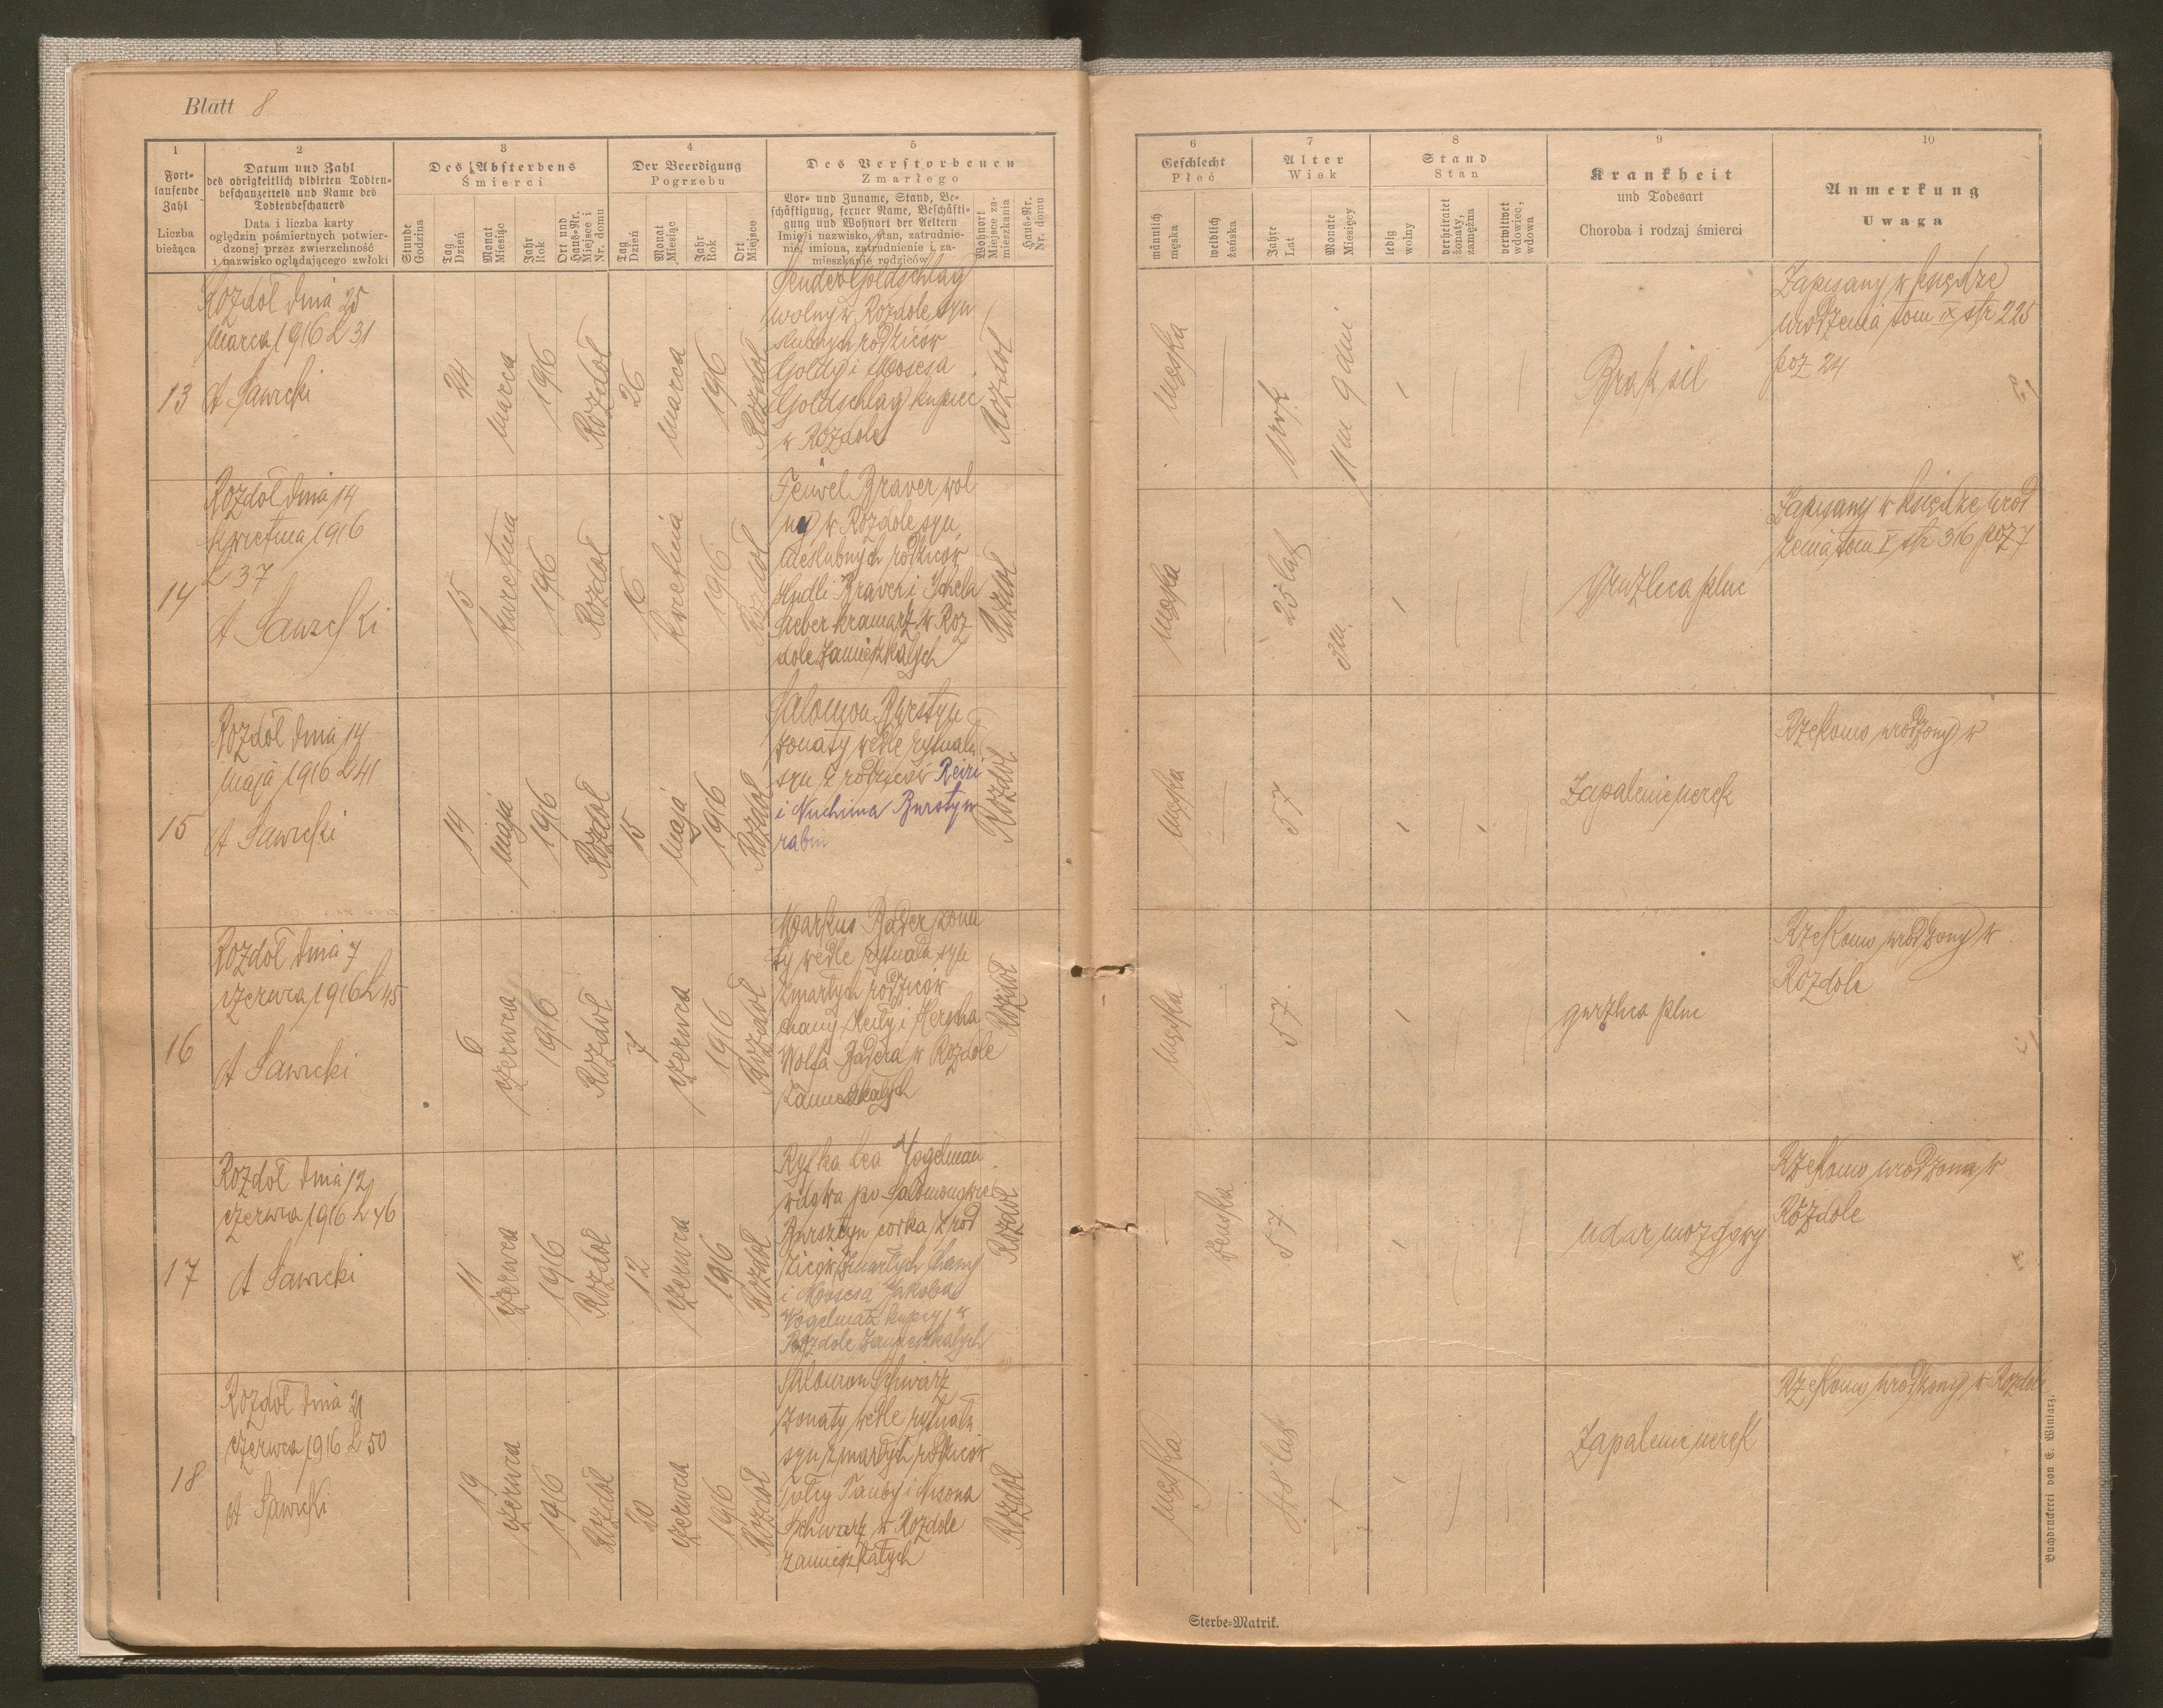 Blatt 8
1
Fort-
laufende
Zahl
Liczba
bieżąca
2
Datum und Zahl
des obrigkeitlich vidirten Todten-
beschauzettels und Name des
Todtenbeschauers
Data i liczba karty
oględzin pośmiertnych potwier-
dzonej przez zwierzchność
i nazwisko oglądającego zwłoki
3
Des Absterbens
Śmierci
Stunde
Godzina
Tag
Dzień
Monat
Miesiąc
Jahr
Rok
Ort und
Haus-Nr.
Miejsce i
Nr. domu
4
Der Beerdigung
Pogrzebu
Tag
Dzień
Monat
Miesiąc
Jahr
Rok
Ort
Miejsce
5
Des Verstorbenen
Zmarłego
Vor- und Zuname, Stand, Be-
schäftigung, ferner Name, Beschäfti-
gung und Wohnort der Aeltern
Imię i nazwisko, stan, zatrudnie-
nie, imiona, zatrudnienie i za-
mieszkanie rodziców
Wohnort
Miejsce za-
mieszkania
Haus-Nr.
Nr. domu
6
Geschlecht
Płeć
männlich
męska
weiblich
żeńska
7
Alter
Wiek
Jahre
Lat
Monate
Miesięcy
8
Stand
Stan
ledig
wolny
verheiratet
żonaty,
zamężna
verwitwet
wdowiec,
wdowa
9
Krankheit
und Todesart
Choroba i rodzaj śmierci
10
Anmerkung
Uwaga
13
Rozdół dnia 25
marca 1916 L 31
A Sawicki
24
marca
1916
Rozdół
26
marca
1916
Rozdół
Sender Goldschlag
wolny w Rozdole syn
ślubnych rodziców
Goldy i Mosesa
Goldschlag kupiec
w Rozdole
Rozdół
męska
1 rok
1 m 9 dni
Brak sił
Zapisany w księdze
urodzenia tom IX str 225
poz 24
14
Rozdół dnia 14
kwietnia 1916
L 37
A Sawicki
15
kwietnia
1916
Rozdół
16
kwietnia
1916
Rozdół
Feiwel Braver wol
ny w Rozdole syn
nieślubnych rodziców
Hudli Braver i Ichela
Sieber kramarz w Roz
dole zamieszkałych
Rozdół
męska
25 lat
3 m.
Gruzlica pluc
Zapisany w księdze urod
zenia tom V str 316 poz 7
15
Rozdół dnia 14
maja 1916 L 41
A Sawicki
14
maja
1916
Rozdół
15
maja
1916
Rozdół
Salomon Bursztyn
żonaty wedle rytuału
syn z rodziców Reizi
i Nuchima Bursztyn
rabin
Rozdół
męska
57
Zapalenie nerek
Rzekomo urodzony w
16
Rozdół dnia 7
czerwca 1916 L 45
A Sawicki
6
czerwca
1916
Rozdół
7
czerwca
1916
Rozdół
Markus Bader żona
ty wedle rytuału syn
zmarłych rodziców
Chany Neity i Hersha
Wolfa Badera w Rozdole
zamieszkałych
Rozdół
męska
57
gruzlica pluc
Rzekomo urodzony w
Rozdole
17
Rozdół dnia 12
czerwca 1916 L 46
A Sawicki
11
czerwca
1916
Rozdół
12
czerwca
1916
Rozdół
Ryfka Lea Vogelman
wdowa po Salomonowie
Bursztyn corka z rod
ziców zmarłych Chany
i Mosesa Jakoba
Vogelman kupcy w
Rozdole zamieszkałych
Rozdół
żeńska
57
udar mozgowy
Rzekomo urodzona w
Rozdole
18
Rozdół dnia 21
czerwca 1916 L 50
A Sawicki
19
czerwca
1916
Rozdół
20
czerwca
1916
Rozdół
Salomon Schwarz
żonaty wedle rytuału
syn zmarłych rodziców
Tauby i Nisona
Schwarz w Rozdole
zamieszkałych
Rozdół
męska
48 lat
Zapalenie nerek
Rzekomo urodzony w Rozdole
Sterbe-Matrik.
Buchdruckerei von E. Winiarz.